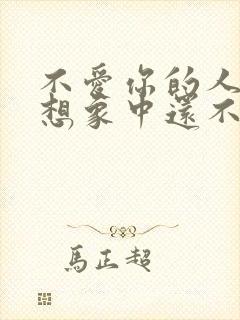 不愛你的人
想象中還不
馬正超